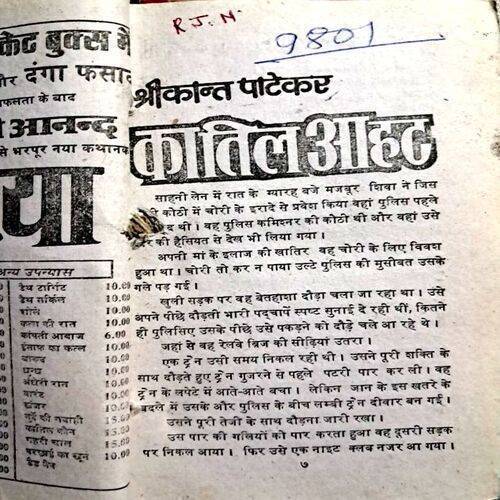 R.J.N.
9801
केट बुक्स में
और दंगा फसाद
सफलता के बाद
आनन्द
से भरपूर नया कथानक
अन्य उपन्यास
डैथ टार्गेट 10.00
डैथ सर्किल 10.00
शोले 10.00
कत्ल की रात 10.00
कांपती आवाज 6.00
इंसाफ का कत्ल 10.00
10.00
10.00
अंधेरी रात 10.00
वारंट 10.00
खंजर 10.00
मुर्दे की गवाही 15.00
कातिल कौन 15.00
गहरी चाल 15.00
10.00
श्रीकान्त पाटेकर
कातिल आहट
साहनी लेन में रात के ग्यारह बजे मजबूर शिवा ने जिस
कोठी में चोरी के इरादे से प्रवेश किया वहां पुलिस पहले
द थी। वह पुलिस कमिश्नर की कोठी थी और वहां उसे
र की हैसियत से देख भी लिया गया।
अपनी मां के इलाज की खातिर वह चोरी के लिए विवश
हुआ था। चोरी तो कर न पाया उल्टे पुलिस की मुसीबत उसके
गले पड़ गई।
खुली सड़क पर वह बेतहाशा दौड़ा चला जा रहा था। उसे
अपने पीछे दौड़ती भारी पदचापें स्पष्ट सुनाई दे रही थीं, कितने
ही पुलिसिए उसके पीछे उसे पकड़ने को दौड़े चले आ रहे थे।
जहां से वह रेलवे ब्रिज की सीढ़ियां उतरा।
एक ट्रेन उसी समय निकल रही थी। उसने पूरी शक्ति के
साथ दौड़ते हुए ट्रेन गुजरने से पहले पटरी पार कर ली। वह
ट्रेन के लपेटे में आते-आते बचा। लेकिन जान के इस खतरे के
बदले में उसके और पुलिस के बीच लम्बी ट्रेन दीवार बन गई।
उसने पूरी तेजी के साथ दौड़ना जारी रखा।
उस पार की गलियों को पार करता हुआ वह दूसरी सड़क
पर निकल आया। फिर उसे एक नाइट क्लब नजर आ गया।
७